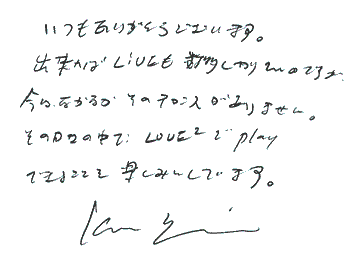 いつもありがとうございます。
出来れば LIVEも しかりたいのですが
今は なかなか そのチャンスがありません。
その日の中で LOVE² で play
できることを 楽しみにしています。